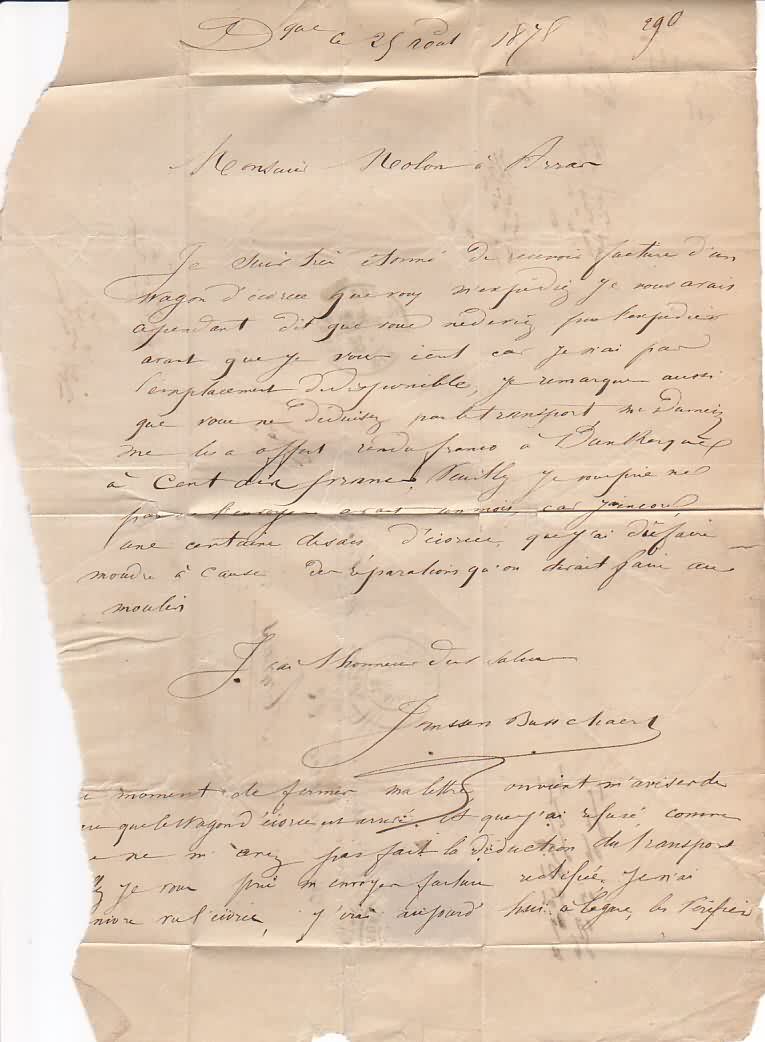 Dque le 25 Août 1878 290
Monsieur Nolon à Arras
Je suis très étonné de recevoir facture d'un
wagon d'écorce que vous m'expédiez je vous avais
cependant dit que vous ne deviez pas l'expédier
avant que je vous écrit car je n'ai pas
l'emplacement de disponible, je remarque aussi
que vous ne déduisez pas le transport Mr
me les a offert rendu franco à Dunkerque
à Cent dix francs. Veuillez je vous prie ne
pas me l'envoyer avant un mois, car j'ai encore
une certaine d'écorce, que j'ai dû faire
moudre à cause des réparations qu'on devait faire au
moulin
J'ai l'honneur de vs saluer
Janssen Busschaert
moment de fermer ma lettre, on vient m'aviser de
que le Wagon d'écorce est arrivé. et que j'ai refusé comme
ne m'avez pas fait la déduction du transport
je vous prie m'envoyer facture rectifiée, je n'ai
vu l'écorce, j'irai aujourd'hui à la gare, les vérifier